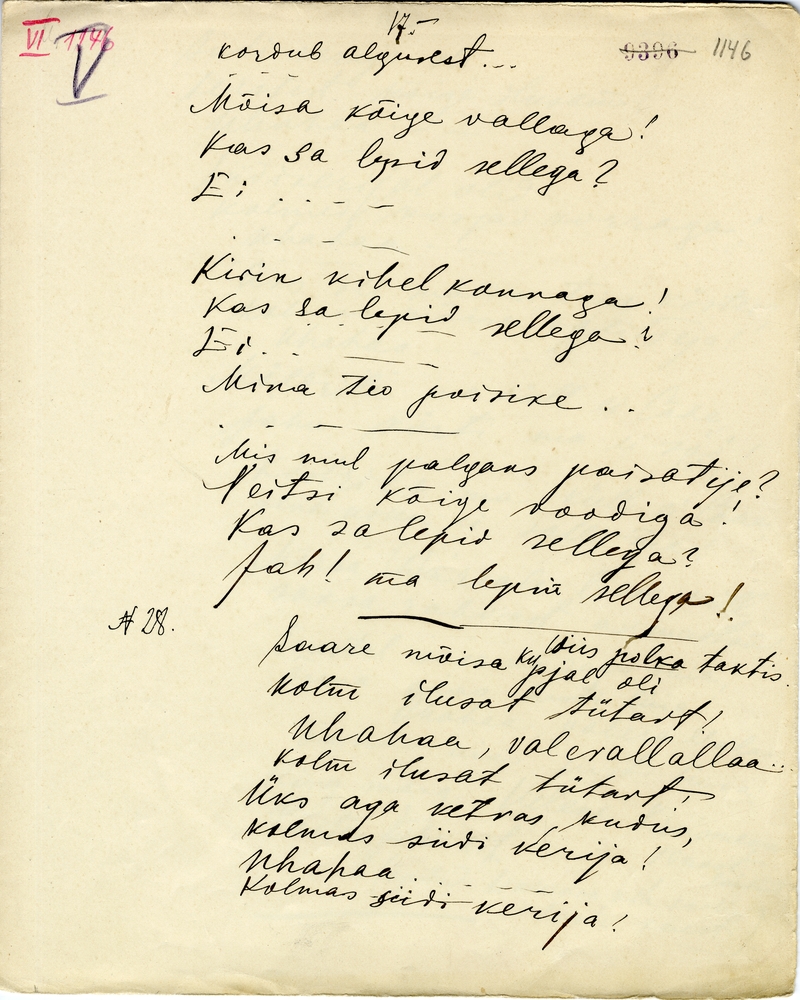 17.
VI 1146
V
9396 1146
kordub algusest...
Mõisa kõige vallaga!
Kas sa lepid sellega?
Ei . . - -
Kirin kihelkonnaga!
Kas sa lepid sellega?
Ei . .
Mina teo poisike . .
Mis mul palgaks paisatije?
Neitsi kõige voodiga!
Kas sa lepid sellega?
Jah! ma lepin sellega!
N 28.
viis polka taktis.
Saare mõisa kupjal oli
kolm ilusat tütart!
Uhahaa, valerallallaa...
kolm ilusat tütart!
Üks aga ketras, kudus,
kolmas siidi kerija!
Uhahaa . . - -
Kolmas siidi kerija!